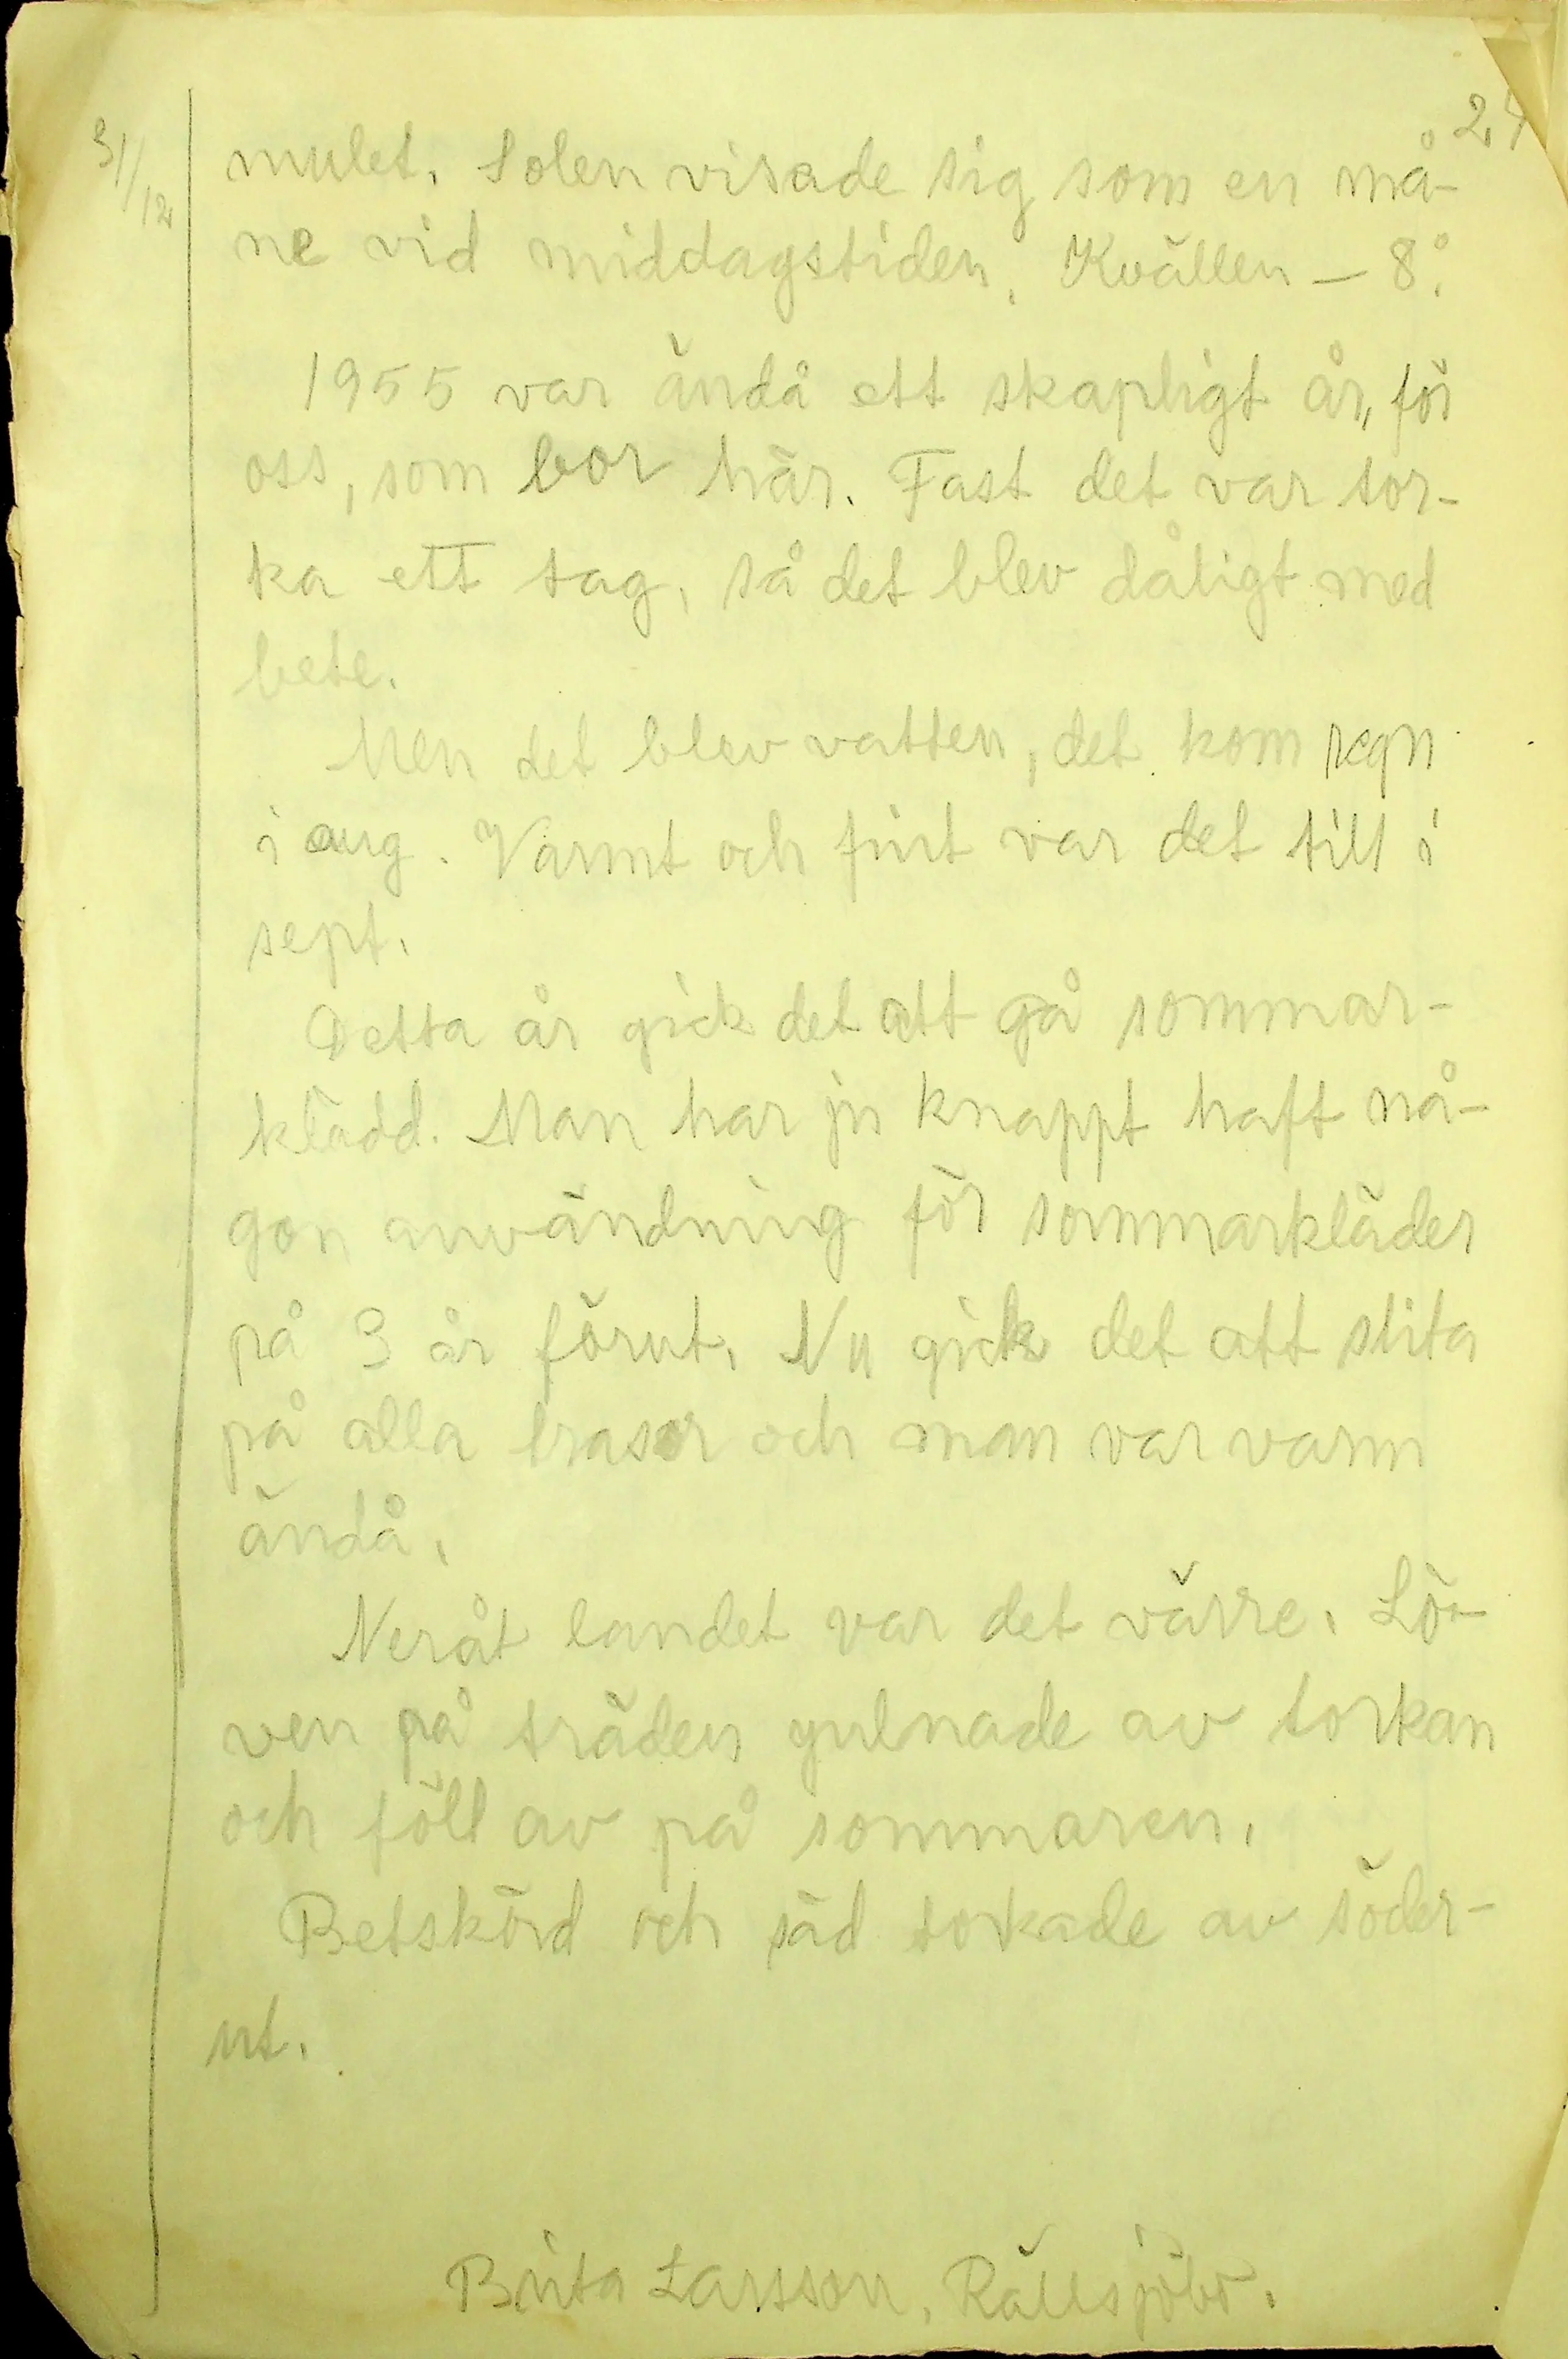 24
31/12
mulet. Solen visade sig som en må-
ne vid middagstiden. Kvällen – 8°.
1955 var ändå ett skapligt år, för
oss, som bor här. Fast det var tor-
ka ett tag, så det blev dåligt med
bete.
Men det blev vatten, det kom regn
i aug. Varmt och fint var det till i
sept.
Detta år gick det att gå sommar-
klädd. Man har ju knappt haft nå-
gon användning för sommarkläder
på 3 år förut. Nu gick det att slita
på alla trasor och man var varm
ändå.
Neråt landet var det värre. Lö-
ven på träden gulnade av torkan
och föll av på sommaren.
Betskörd och säd torkade av söder-
ut.
Brita Larsson, Rällsjöbo.